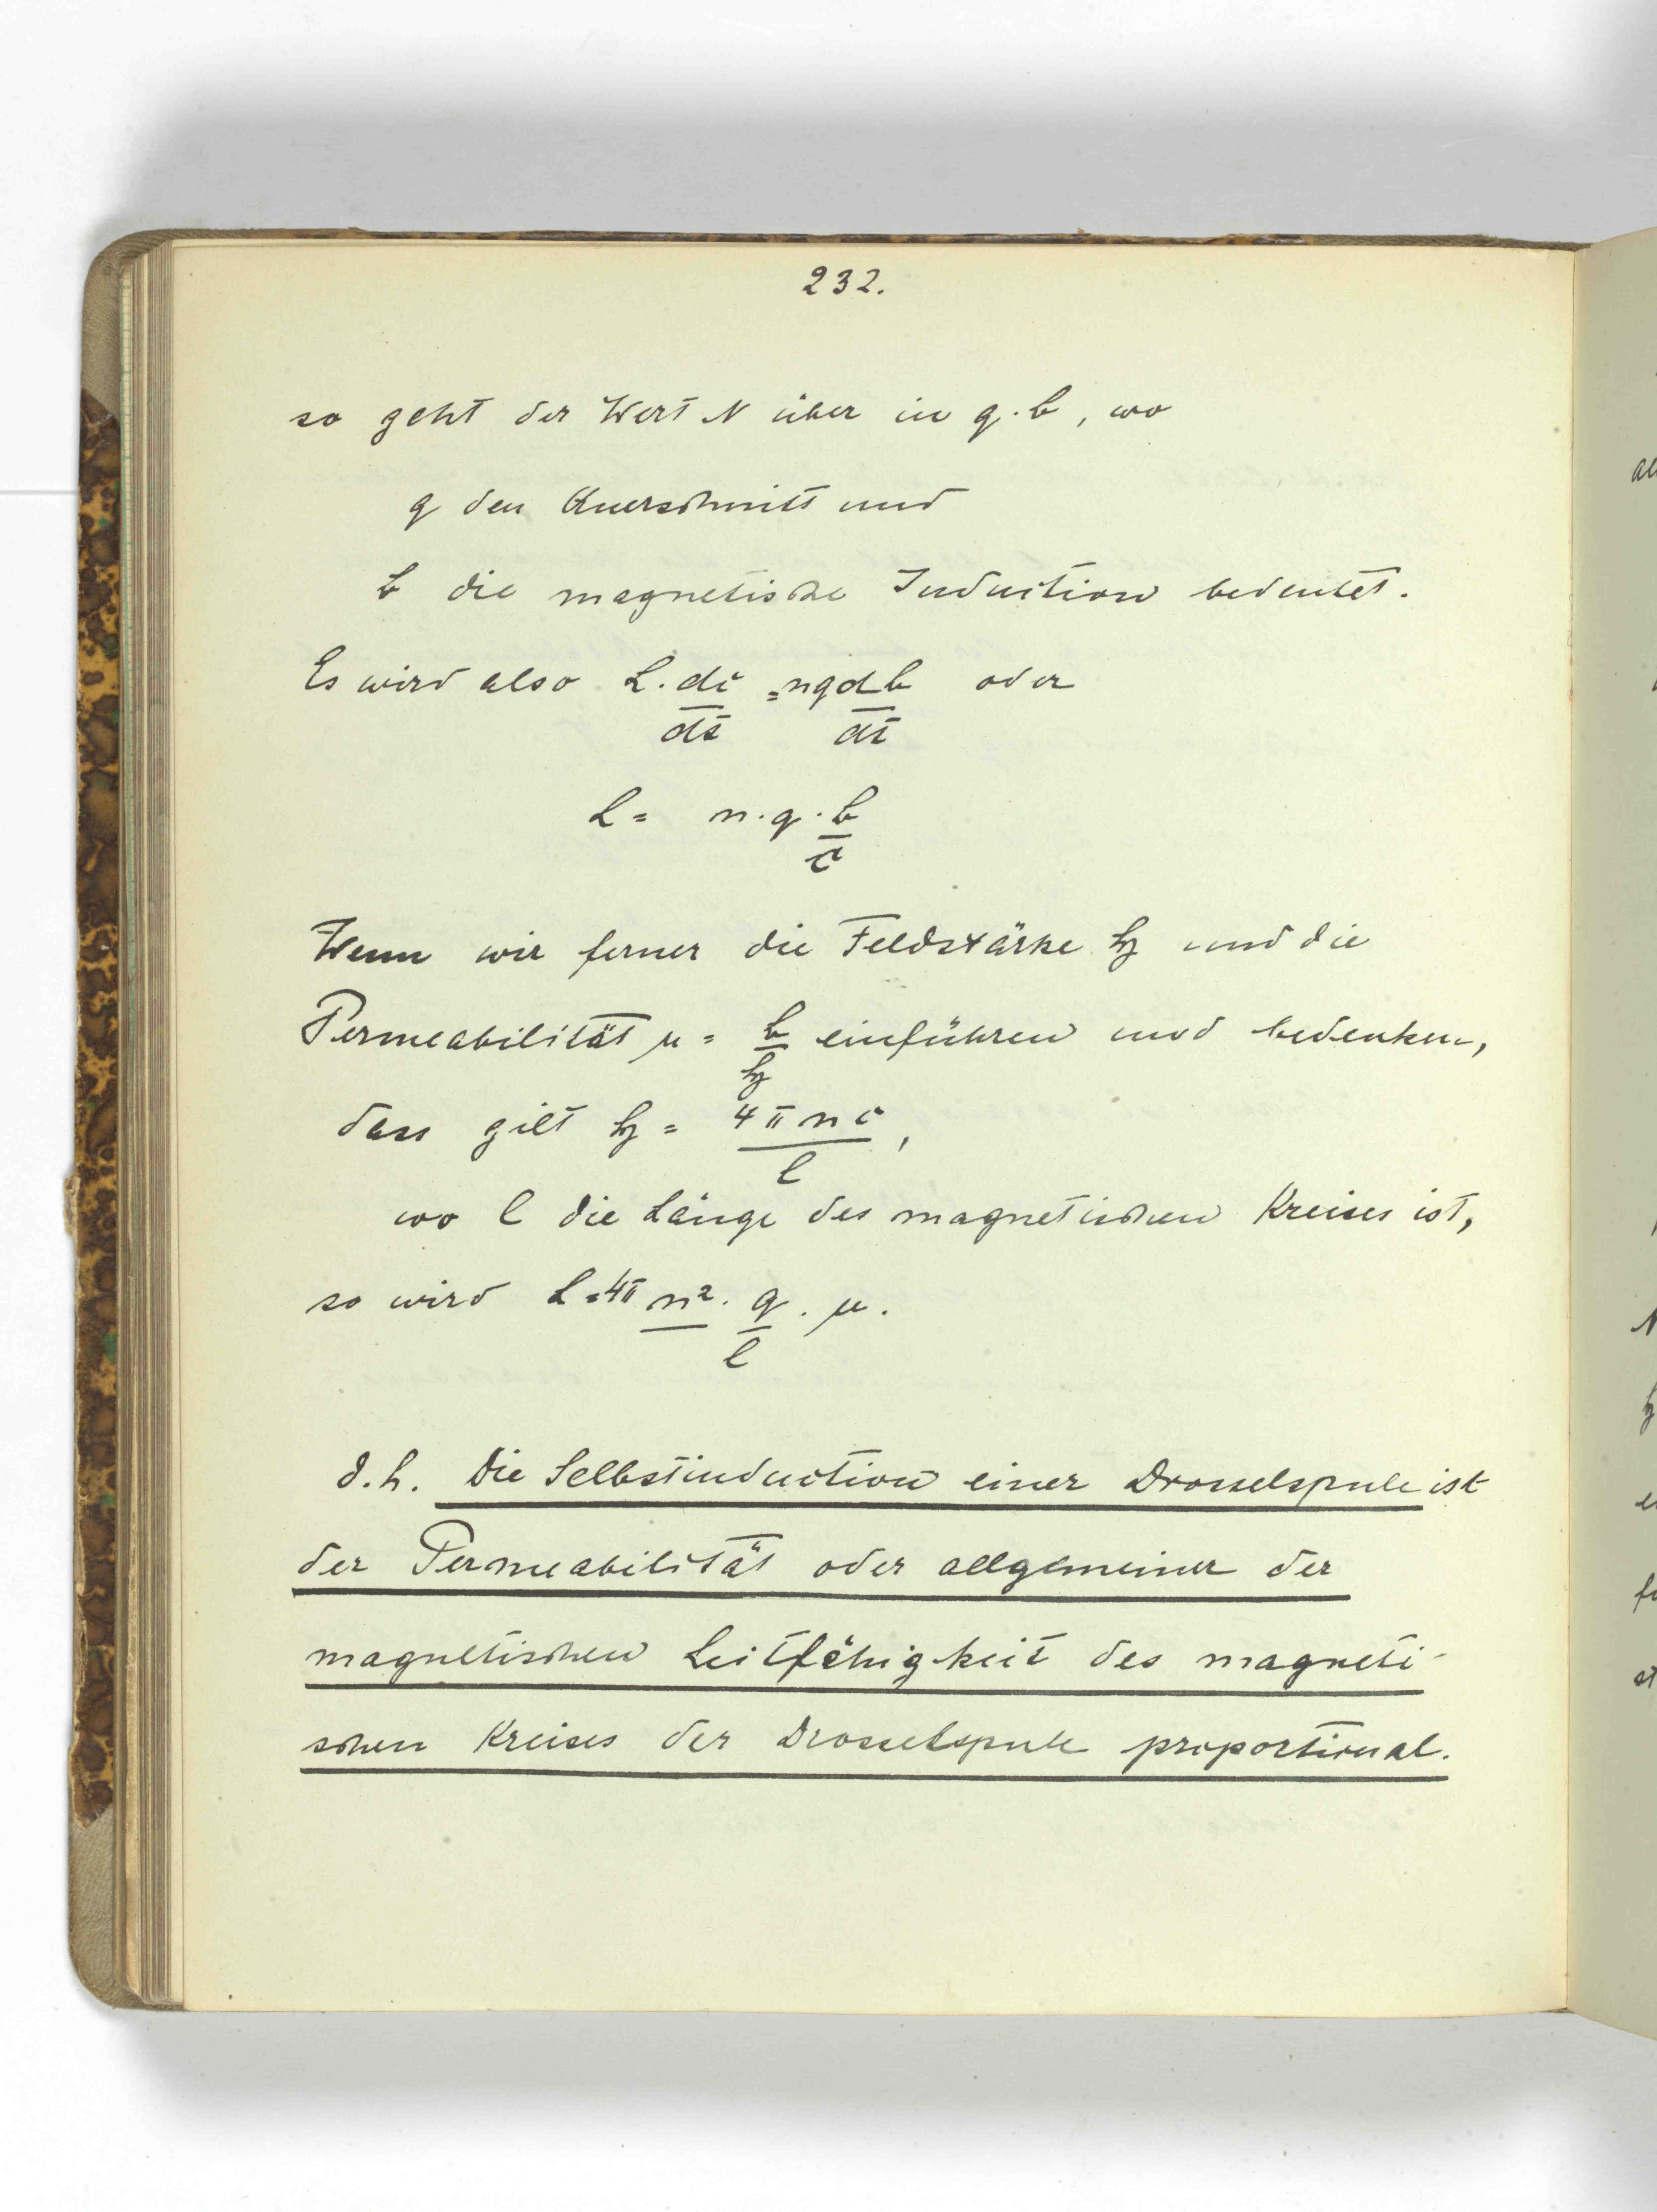 232.
so geht der Wert N über in q. b, wo
q den Querschnitt und
b die magnetische Induction bedeutet.
Es wird also L. di = nqdb oder
dt dt
L = n. q. b
i
Wenn wir ferner die Feldstärke h und die
Permeabilität µ = b einführen und bedenken,
h
dass gilt h = 4 π n i,
l
wo l die Länge des magnetischen Kreises ist,
so wird L = 4π n². q. µ.
l
d.h. Die Selbstinduction einer Drosselspule ist
der Permeabilität oder allgemeiner der
magnetischen Leitfähigkeit des magneti-
schen Kreises der Drosselspule proportional.